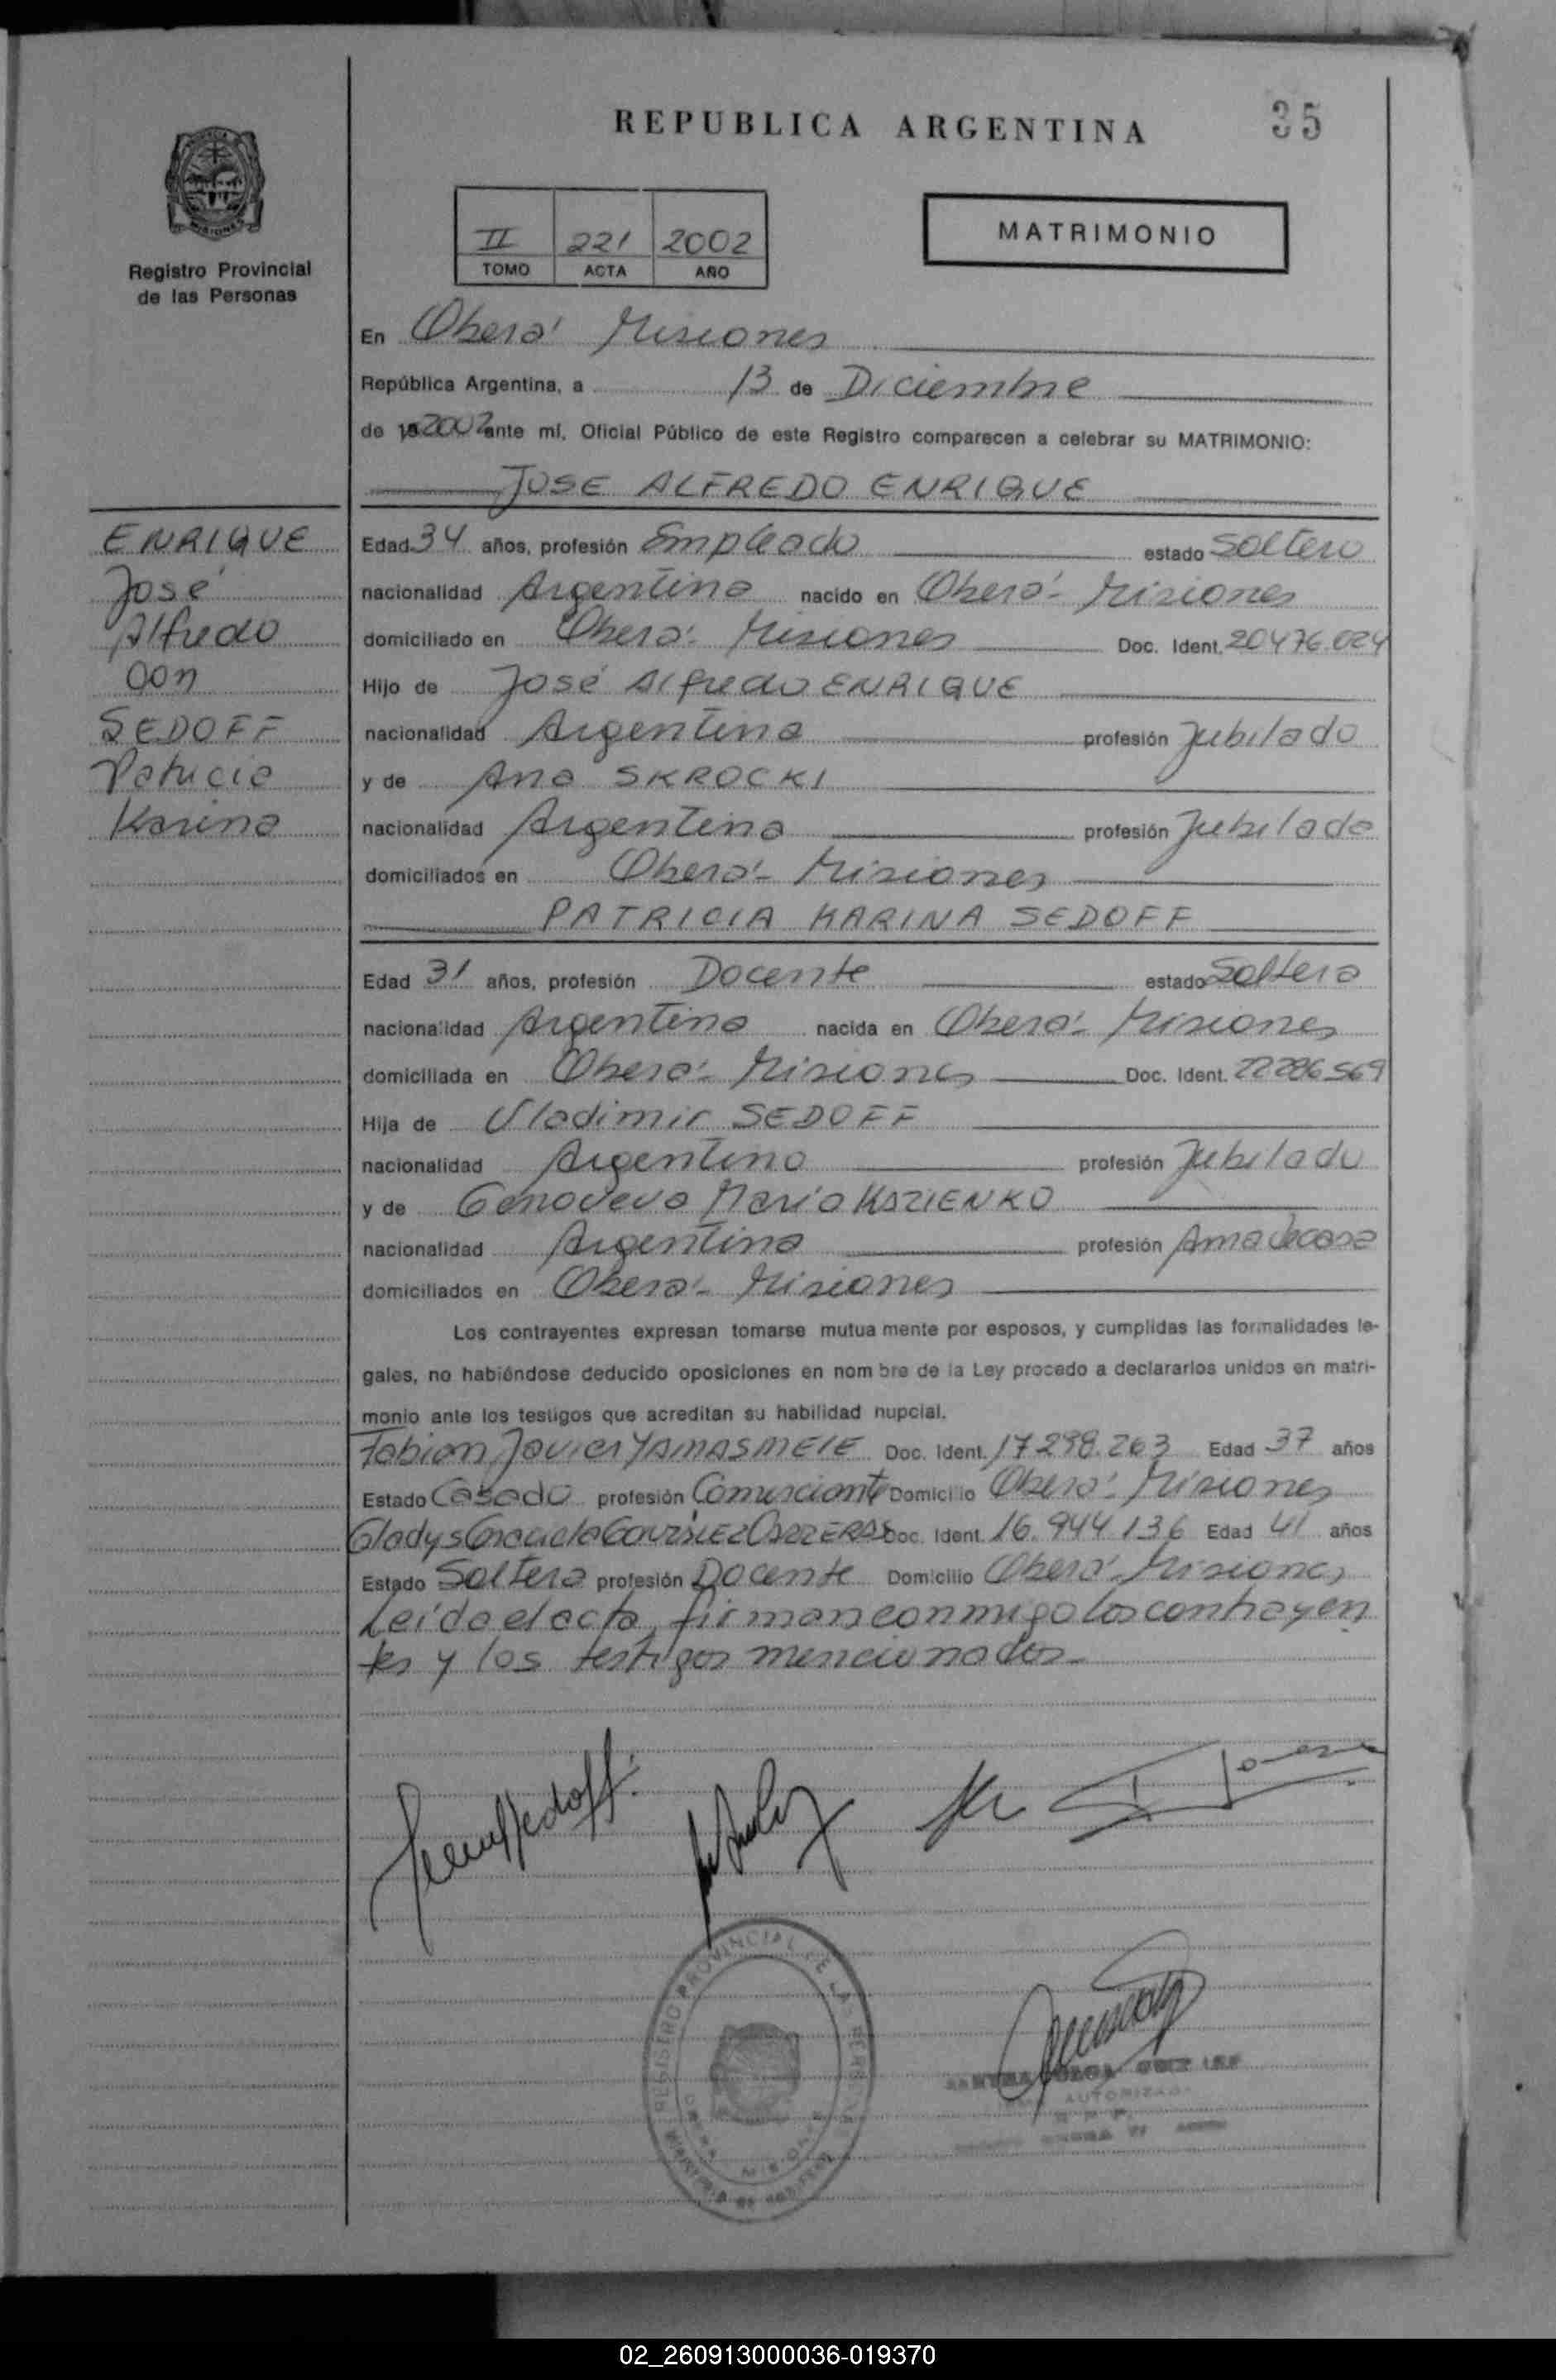 REPUBLICA ARGENTINA
35
MISIONES
Registro Provincial
de las Personas
II 221 2002
TOMO ACTA AÑO
MATRIMONIO
En Oberá Misiones
República Argentina, a 13 de Diciembre
de 192002 ante mí, Oficial Público de este Registro comparecen a celebrar su MATRIMONIO:
JOSE ALFREDO ENRIQUE
ENRIQUE
José
Alfredo
con
SEDOFF
Patricia
Karina
Edad 34 años, profesión Empleado estado Soltero
nacionalidad Argentina nacido en Oberá - Misiones
domiciliado en Oberá - Misiones Doc. Ident. 20476.024
Hijo de José Alfredo ENRIQUE
nacionalidad Argentina profesión Jubilado
y de Ana SKROCKI
nacionalidad Argentina profesión Jubilada
domiciliados en Oberá - Misiones
PATRICIA KARINA SEDOFF
Edad 31 años, profesión Docente estado Soltera
nacionalidad Argentina nacida en Oberá - Misiones
domiciliada en Oberá - Misiones Doc. Ident. 22286569
Hija de Vladimir SEDOFF
nacionalidad Argentino profesión Jubilado
y de Genoveva María KOZIENKO
nacionalidad Argentina profesión Ama de casa
domiciliados en Oberá - Misiones
Los contrayentes expresan tomarse mutua mente por esposos, y cumplidas las formalidades le-
gales, no habiéndose deducido oposiciones en nom bre de la Ley procedo a declararlos unidos en matri-
monio ante los testigos que acreditan su habilidad nupcial.
Fabian Javier YAMASMEIE Doc. Ident. 17.298.263 Edad 37 años
Estado Casado profesión Comerciante Domicilio Oberá - Misiones
Gladys Graciela Doc. Ident. 16.944.136 Edad 41 años
Estado Soltera profesión Docente Domicilio Oberá - Misiones
Leída el acta, firman conmigo los contrayen
tes y los testigos mencionados.
REGISTRO PROVINCIAL DE LAS PERSONAS
AUTORIZADA
02_260913000036-019370